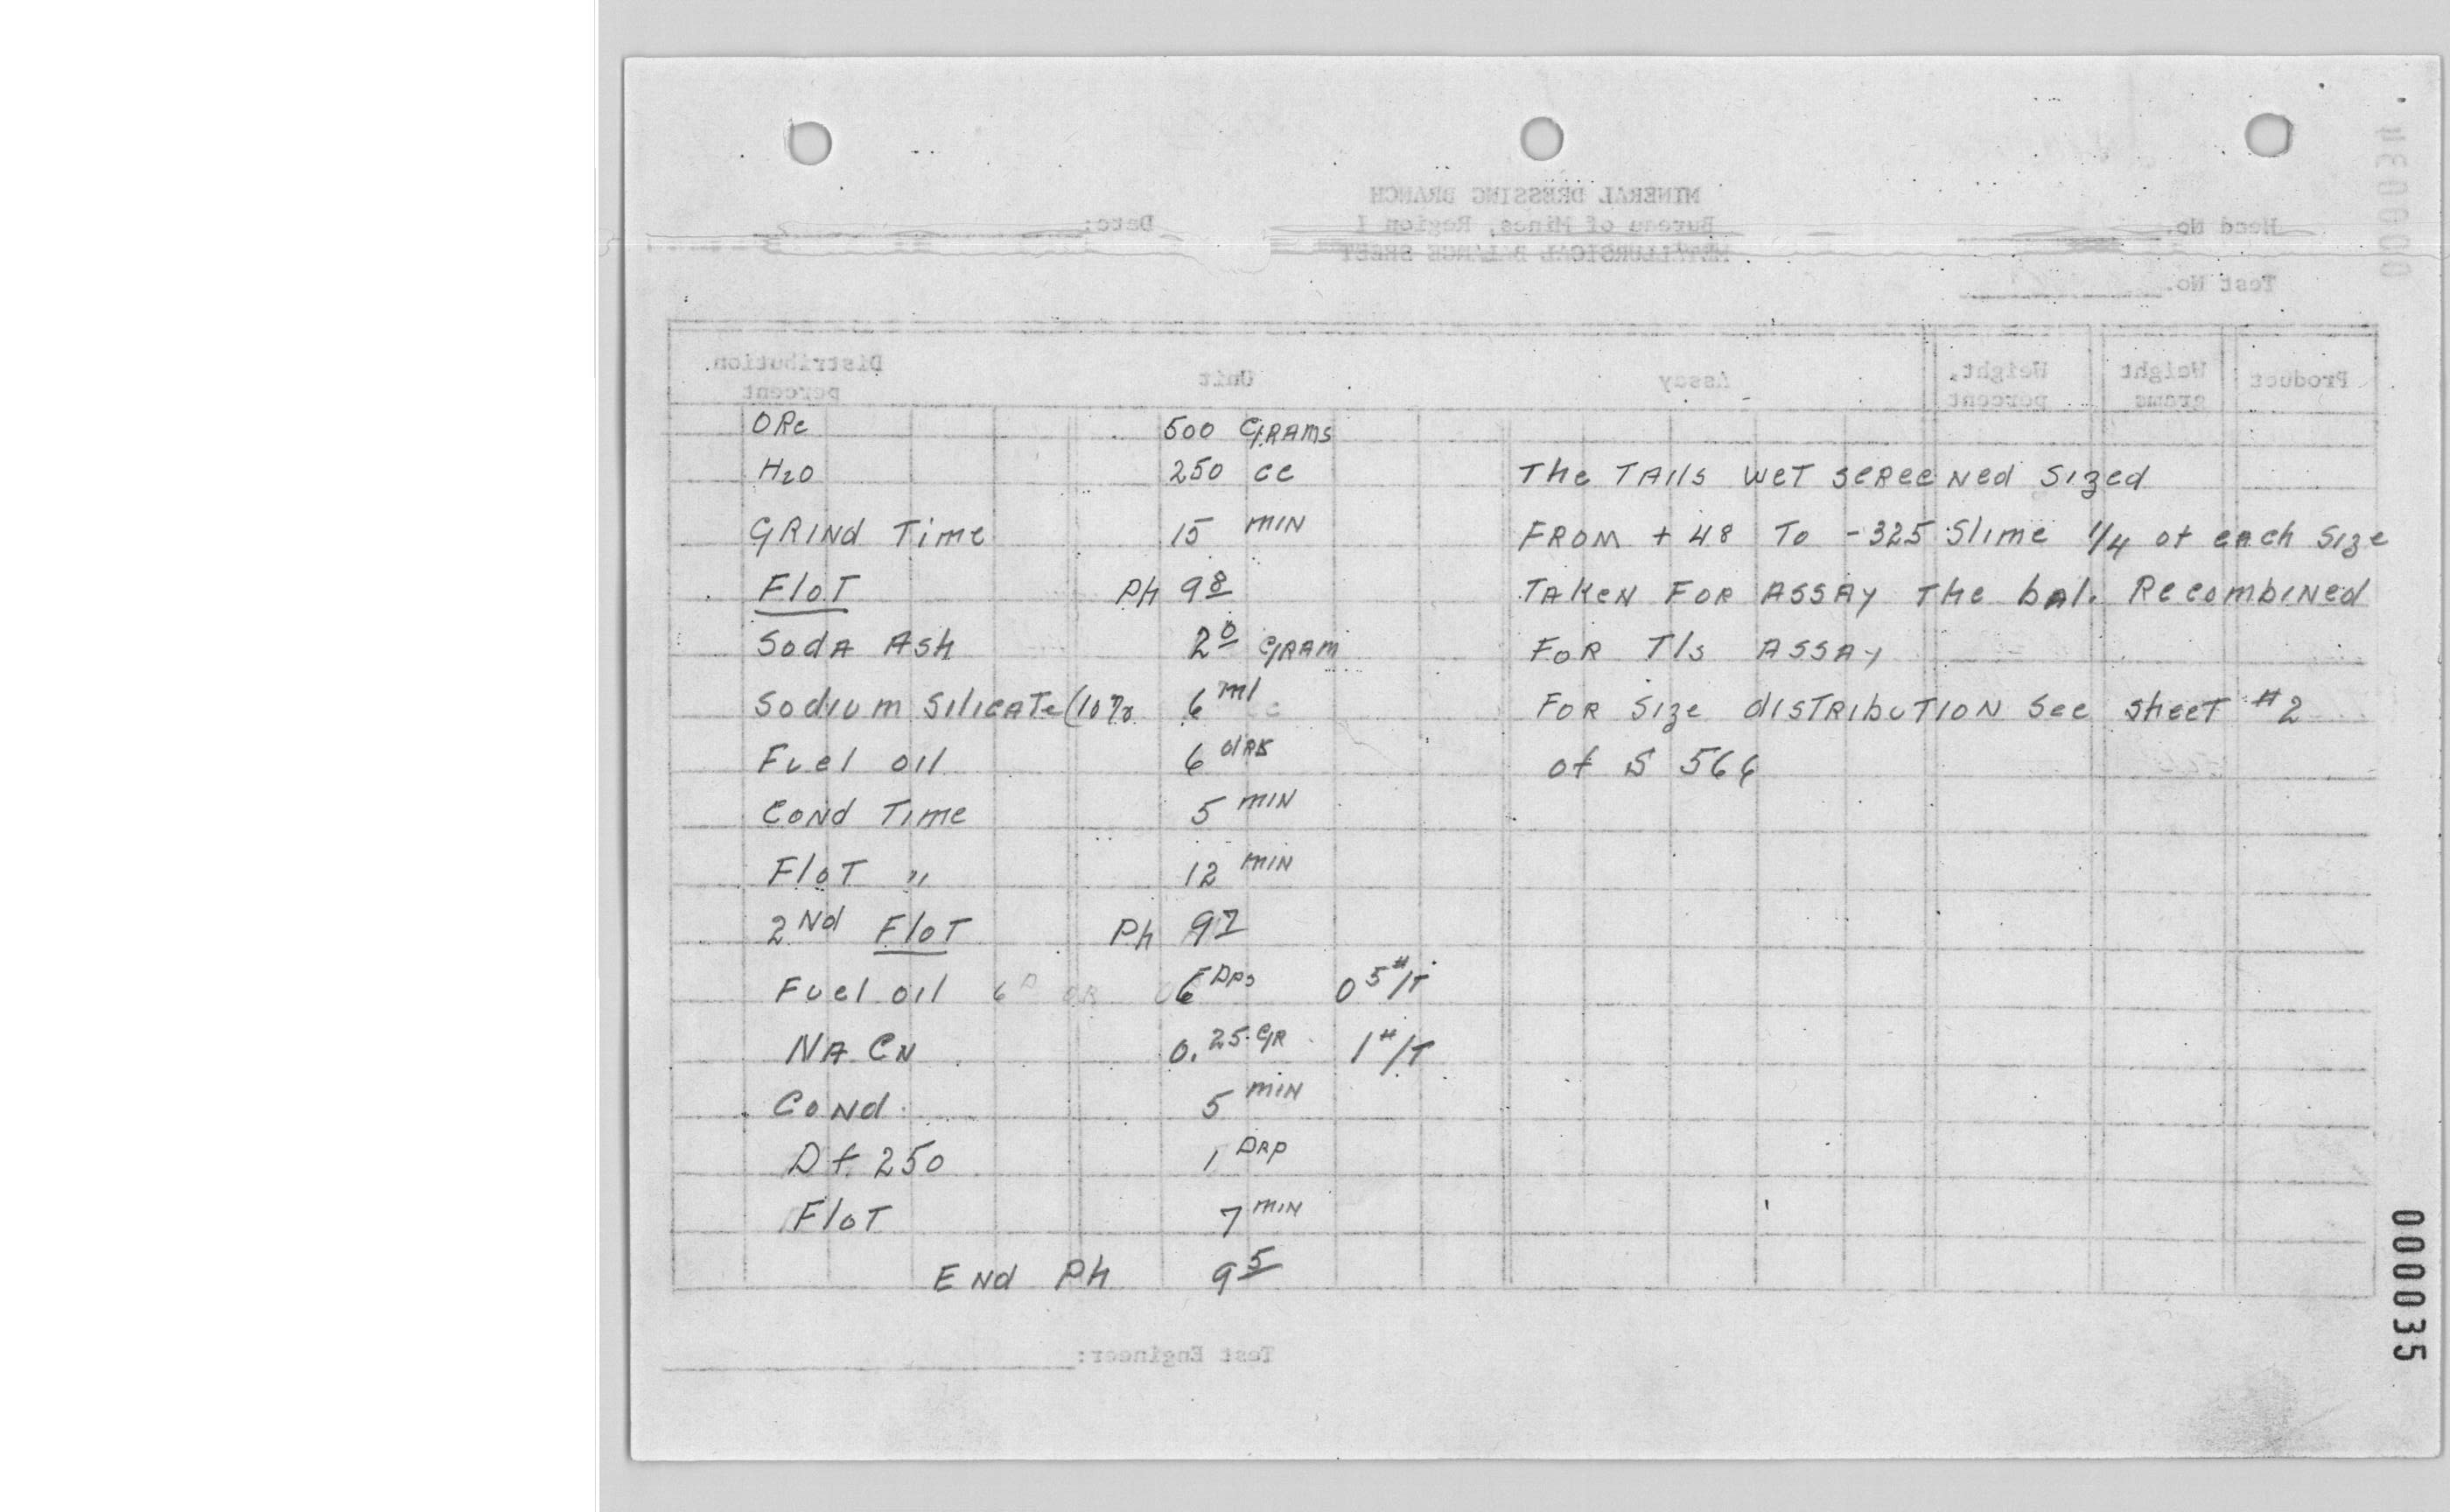 ORe 500 GRAMS
H2O 250 cc
GRINd Time 15 MIN
FloT Ph 9 8
SodA ASh 2 0 GRAM
Sodium SilicATe (10% 6 ml
Fuel oil 6
CoNd Time 5 MIN
FloT " 12 MIN
2 Nd FloT Ph 9 7
Fuel oil 6 DPs 0 5 #/T
NA CN 0.25 GR 1 #/T
CoNd. 5 MIN
Df 250 1 DRP
FloT 7 MIN
ENd Ph 9 5
The TAIls weT scReeNed Sized
FROM + 48 To -325 Slime 1/4 of each Size
TAKeN FOR ASSAY The bal. RecombiNed
FOR Tls ASSAY
FOR Size dISTRIbuTION See SheeT #2
of S 566
MINERAL DRESSING BRANCH
Bureau of Mines, Region I
METALLURGICAL BALANCE SHEET
Head No.
Date:
Test No.
Product
Weight grams
Weight, percent
Assay
Unit
Distribution, percent
Test Engineer:
000034
000035